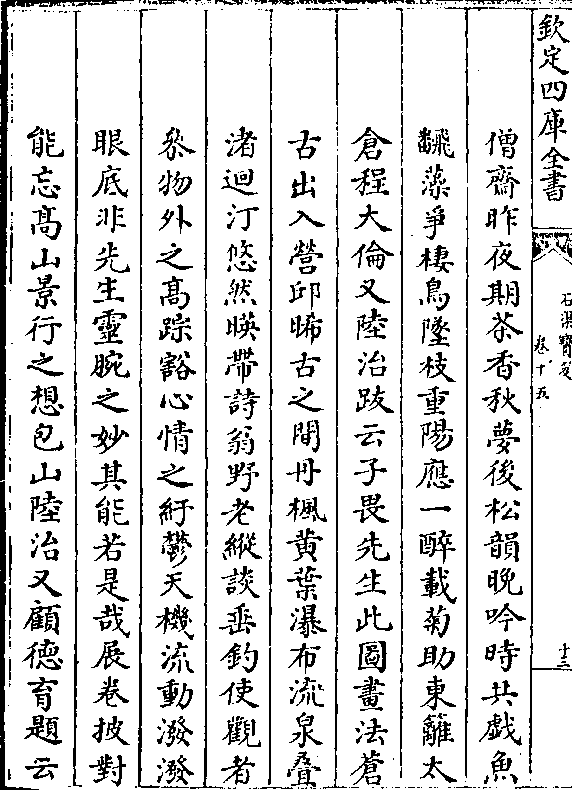 欽定四庫全書
石渠寳笈
卷十五
十三
僧齋昨夜期茶香秋夢後松韻晚吟時共戯魚
翻藻爭棲鳥墜枝重陽應一醉載菊助東籬太
倉程大倫又陸治跋云子畏先生此圖畫法蒼
古出入營邱晞古之間丹楓黄葉瀑布流泉叠
渚迴汀悠然暎帶詩翁野老縱談垂釣使觀者
叅物外之髙踪豁心情之紆鬱天機流動潑潑
眼底非先生靈腕之妙其能若是哉展卷披對
能忘髙山景行之想包山陸治又顧德育題云